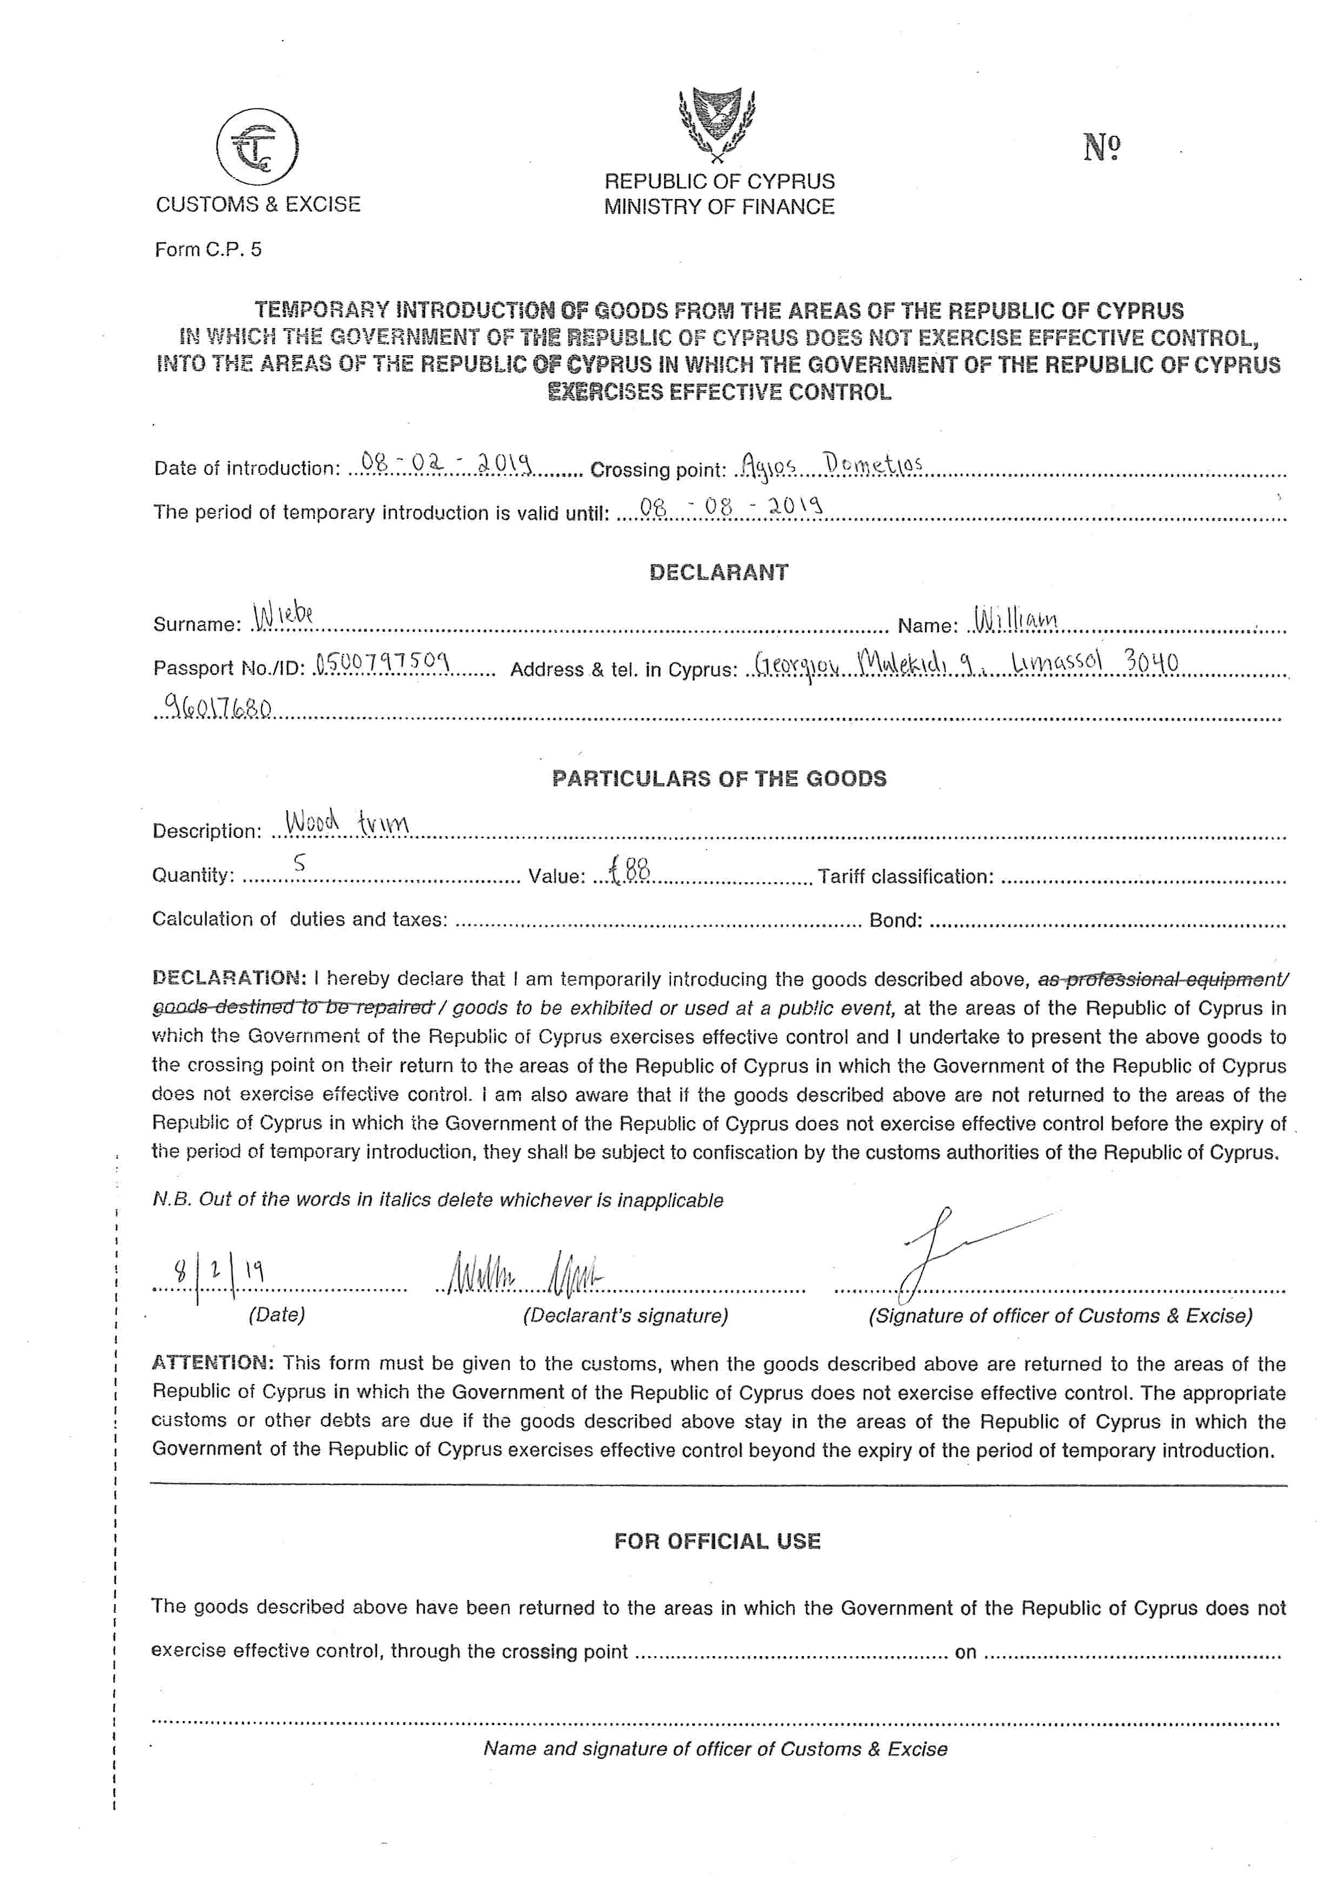 CUSTOMS & EXCISE
REPUBLIC OF CYPRUS
MINISTRY OF FINANCE
Nº
Form C.P. 5
TEMPORARY INTRODUCTION OF GOODS FROM THE AREAS OF THE REPUBLIC OF CYPRUS
IN WHICH THE GOVERNMENT OF THE REPUBLIC OF CYPRUS DOES NOT EXERCISE EFFECTIVE CONTROL,
INTO THE AREAS OF THE REPUBLIC OF CYPRUS IN WHICH THE GOVERNMENT OF THE REPUBLIC OF CYPRUS
EXERCISES EFFECTIVE CONTROL
Date of introduction: 08-02-2019 Crossing point: Agios Dometios
The period of temporary introduction is valid until: 08-08-2019
DECLARANT
Surname: Wiebe Name: William
Passport No./ID: 0500797509 Address & tel. in Cyprus: Georgiou Malekidi 9, Limassol 3040
96017680
PARTICULARS OF THE GOODS
Description: Wood trim
Quantity: 5 Value: £88 Tariff classification:
Calculation of duties and taxes: Bond:
DECLARATION: I hereby declare that I am temporarily introducing the goods described above, as professional equipment/
goods destined to be repaired / goods to be exhibited or used at a public event, at the areas of the Republic of Cyprus in
which the Government of the Republic of Cyprus exercises effective control and I undertake to present the above goods to
the crossing point on their return to the areas of the Republic of Cyprus in which the Government of the Republic of Cyprus
does not exercise effective control. I am also aware that if the goods described above are not returned to the areas of the
Republic of Cyprus in which the Government of the Republic of Cyprus does not exercise effective control before the expiry of
the period of temporary introduction, they shall be subject to confiscation by the customs authorities of the Republic of Cyprus.
N.B. Out of the words in italics delete whichever is inapplicable
8/2/19
(Date) (Declarant's signature) (Signature of officer of Customs & Excise)
ATTENTION: This form must be given to the customs, when the goods described above are returned to the areas of the
Republic of Cyprus in which the Government of the Republic of Cyprus does not exercise effective control. The appropriate
customs or other debts are due if the goods described above stay in the areas of the Republic of Cyprus in which the
Government of the Republic of Cyprus exercises effective control beyond the expiry of the period of temporary introduction.
FOR OFFICIAL USE
The goods described above have been returned to the areas in which the Government of the Republic of Cyprus does not
exercise effective control, through the crossing point on
Name and signature of officer of Customs & Excise